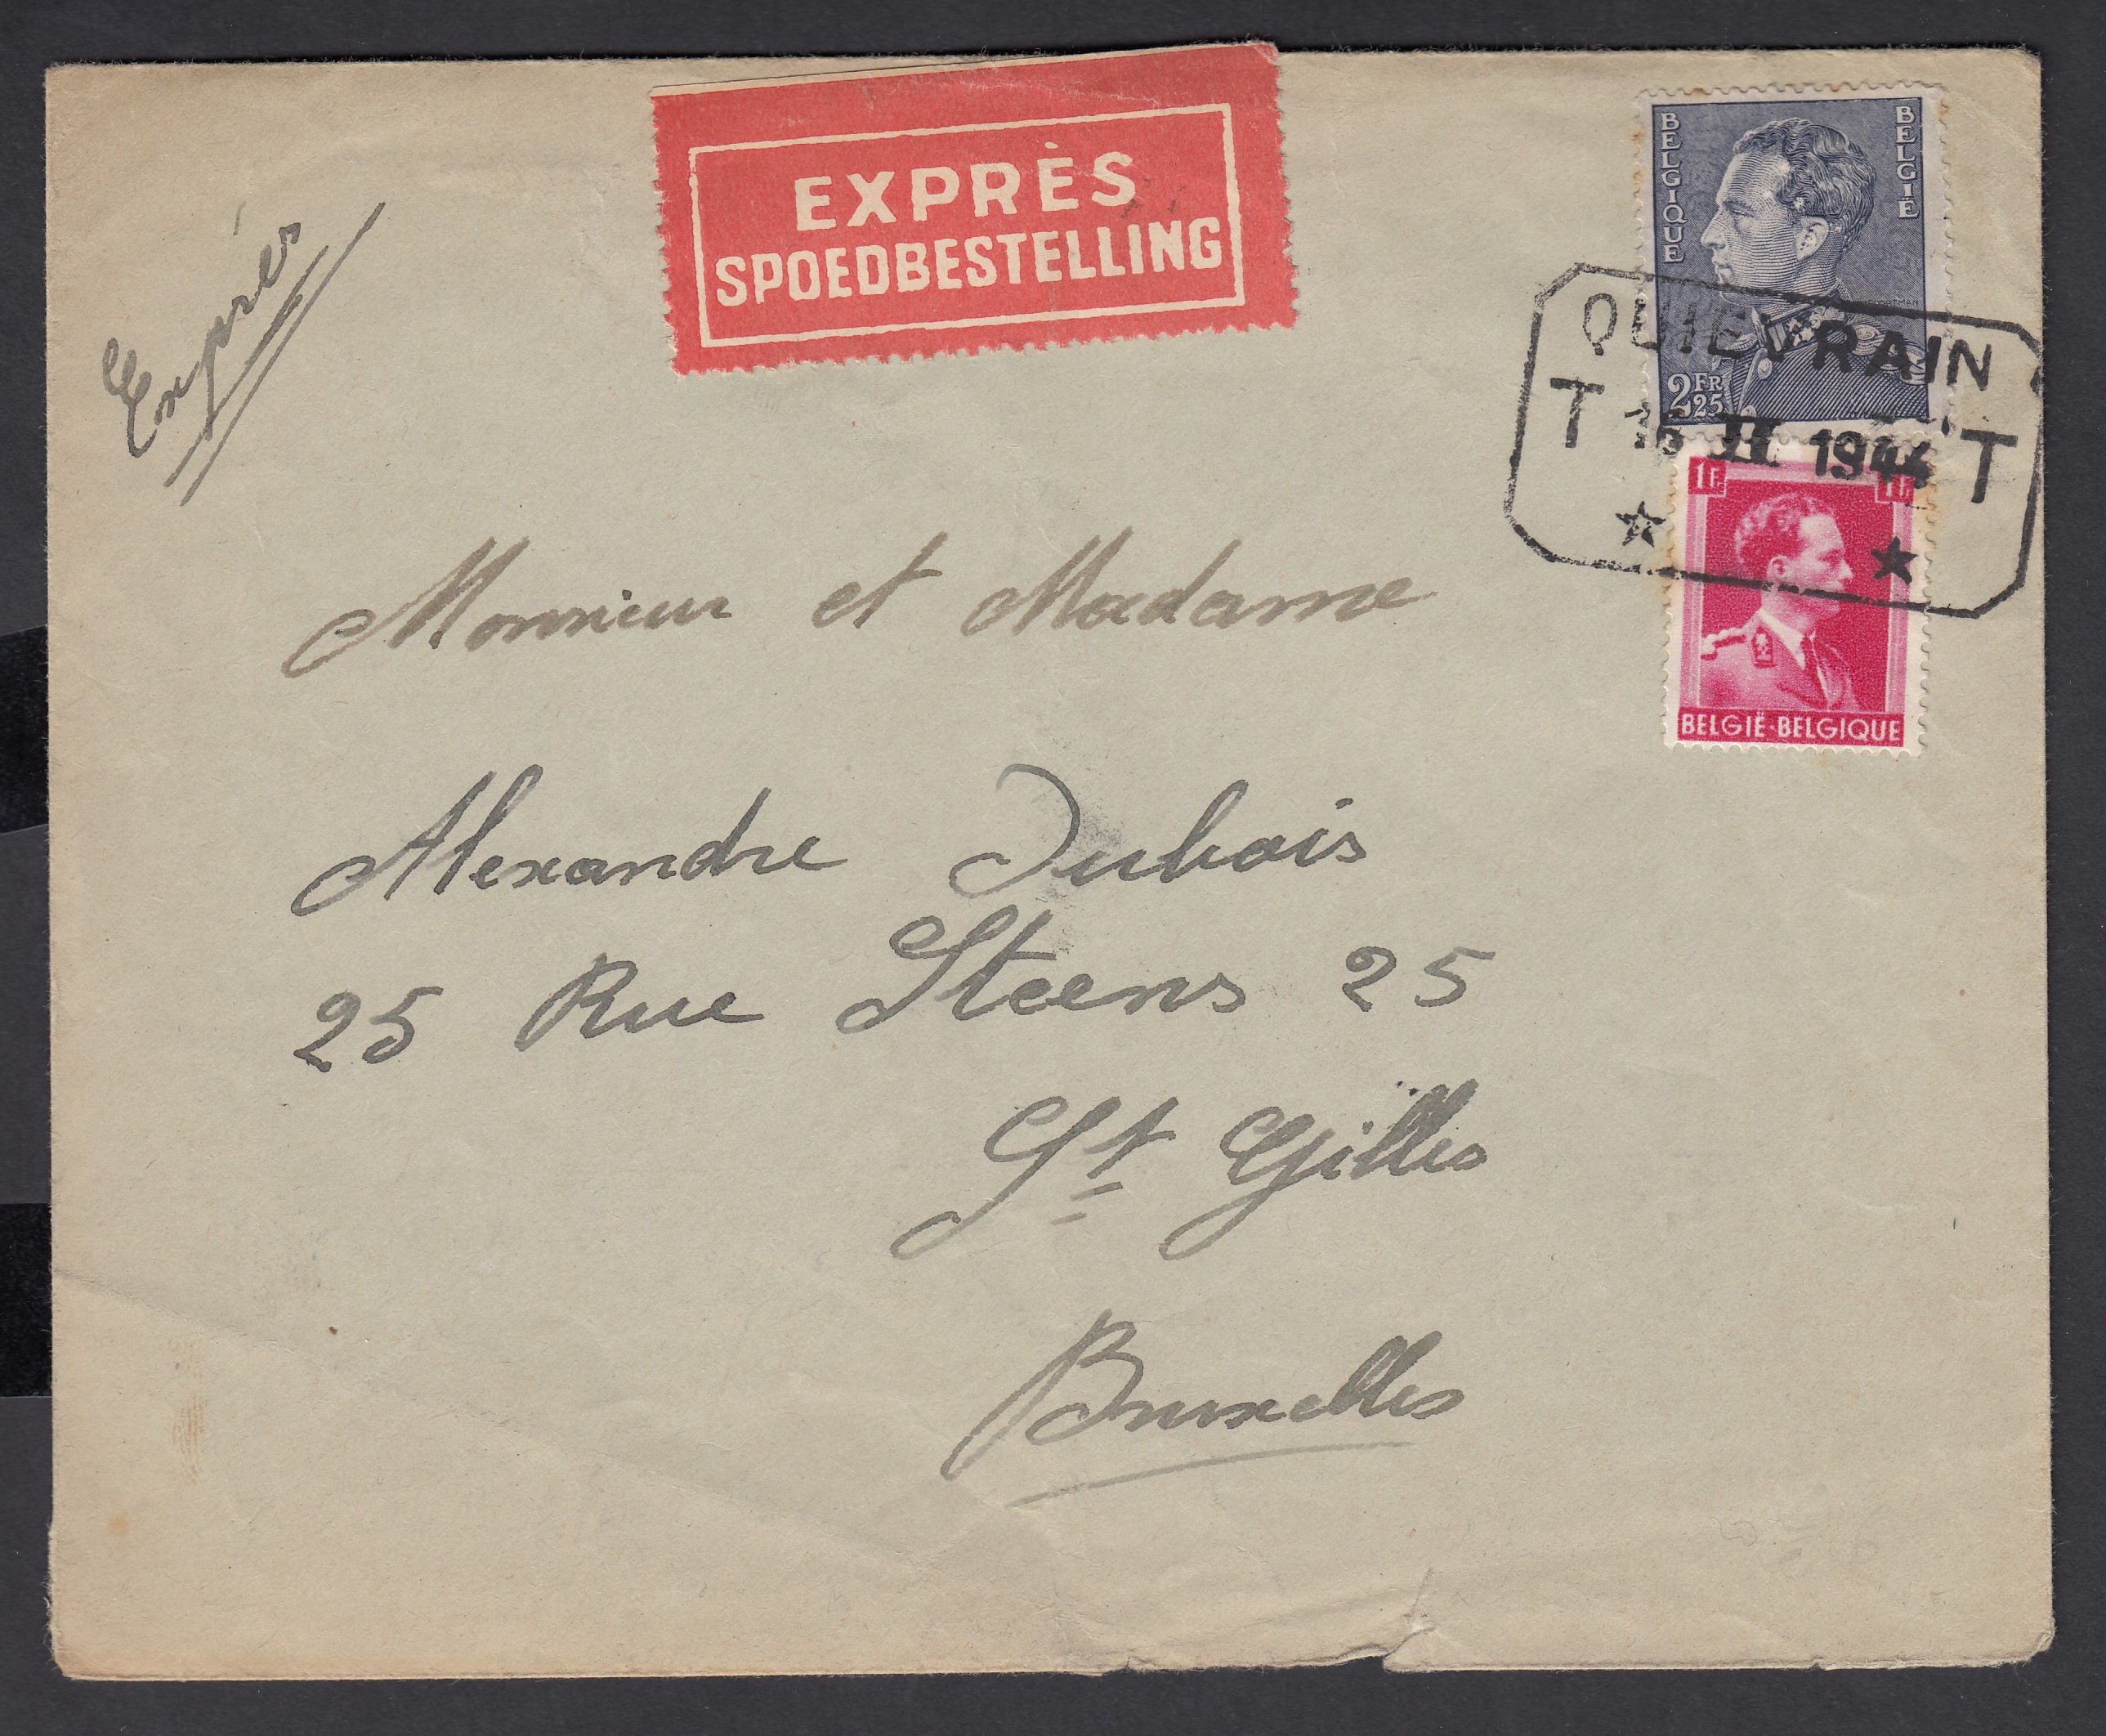 EXPRÈS
SPOEDBESTELLING
Exprès
BELGIQUE
BELGIË
2FR25
QUIEVRAIN
T 16 II 1944 T
1F. 1F.
BELGIË·BELGIQUE
Monsieur et Madame
Alexandre Dubois
25 Rue Steens 25
St Gilles
Bruxelles